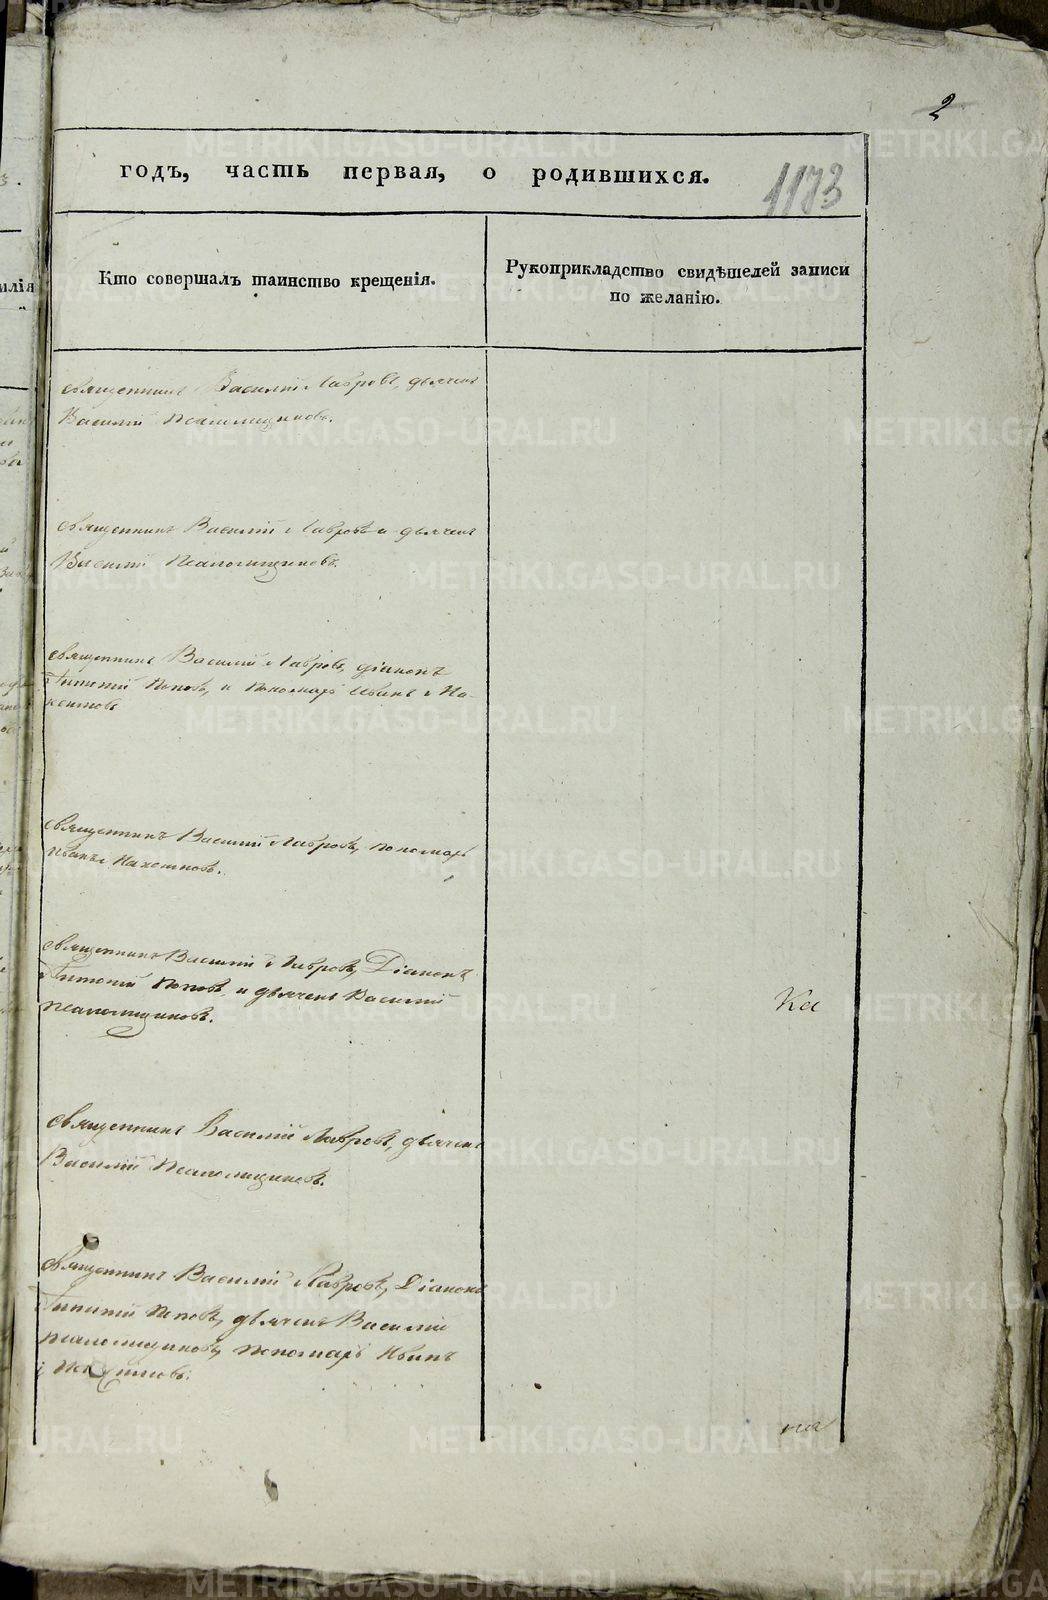 2
годъ, часть первая, о родившихся.
1173
Кто совершалъ таинство крещенія.
Рукоприкладство свидѣтелей записи
по желанію.
илія
священникъ Василій Лавровъ, дьячекъ
Василій Псаломщиковъ.
священникъ Василій Лавровъ и дьячекъ
Василій Псаломщиковъ.
священникъ Василій Лавровъ, діаконъ
Поповъ, и пономарь Иванъ
священникъ Василій Лавровъ, пономарь
Иванъ
священникъ Василій Лавровъ, Діаконъ
Поповъ, и дьячекъ Василій
Псаломщиковъ.
Ка
священникъ Василій Лавровъ, дьячекъ
Василій Псаломщиковъ.
священникъ Василій Лавровъ, Діаконъ
Поповъ, дьячекъ Василій
Псаломщиковъ, пономарь Иванъ
METRIKI.GASO-URAL.RU